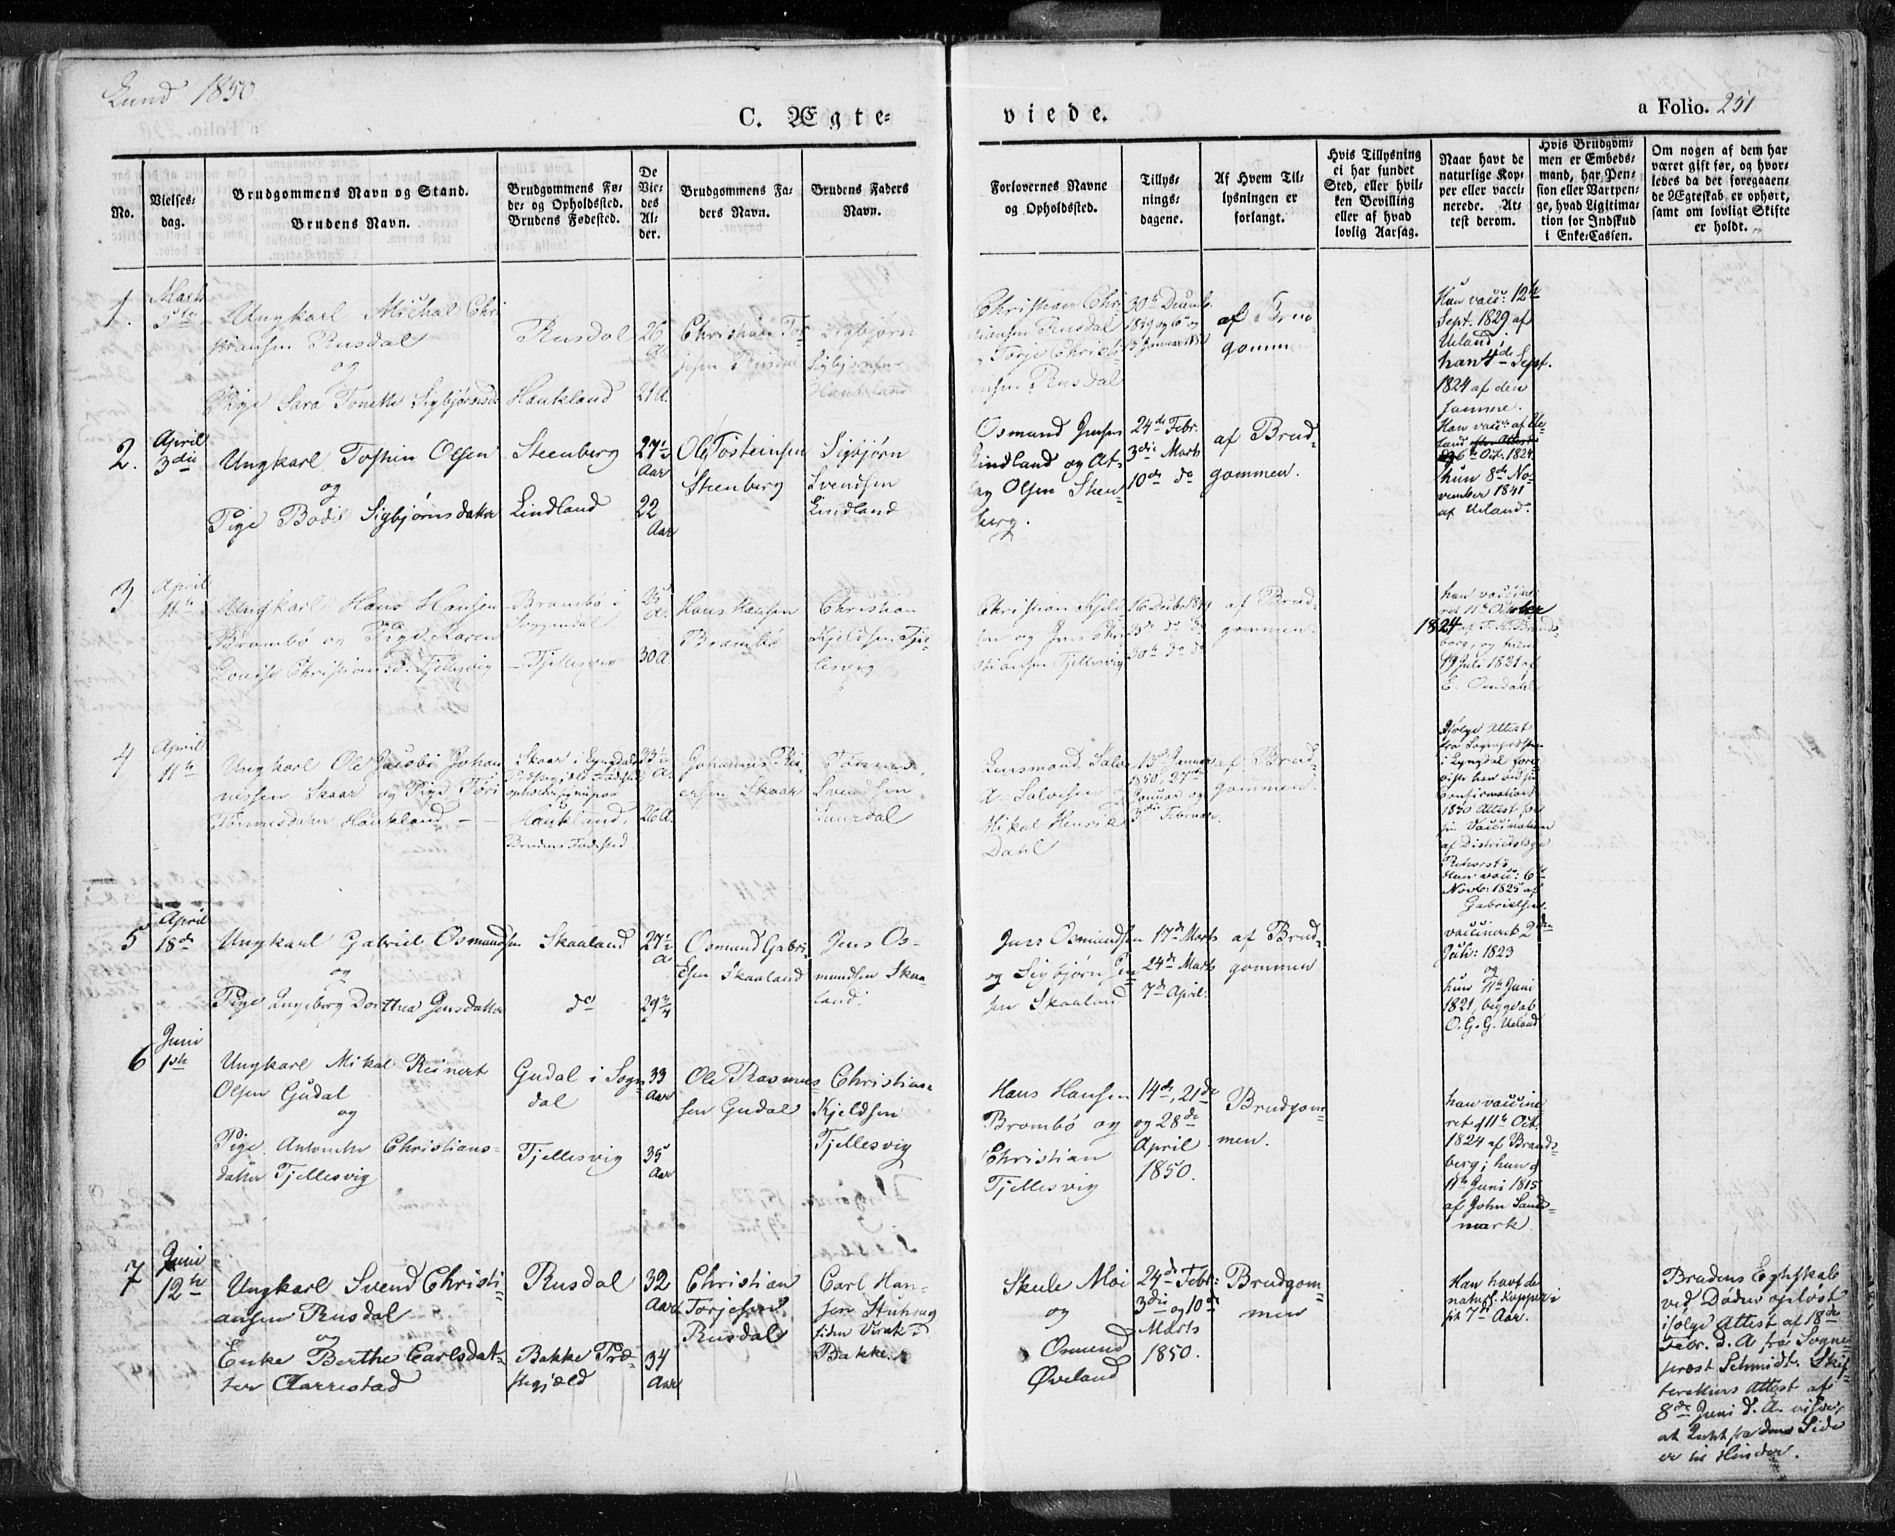 Lund 1850.
C. Ægte-
viede.
a Folio. 251
No.
Vielses-
dag.
Brudgommens Navn og Stand.
Brudens Navn.
Brudgommens Fø-
de- og Opholdssted.
Brudens Fødested.
De
Vie-
des
Al-
der.
Brudgommens Fa-
ders Navn.
Brudens Faders
Navn.
Forlovernes Navne
og Opholdssted.
Tillys-
nings-
dagene.
Af Hvem Til-
lysningen er
forlangt.
Hvis Tillysning
ei har fundet
Sted, eller hvil-
ken Bevilling
eller af hvad
lovlig Aarsag.
Naar havt de
naturlige Kop-
per eller vacci-
nerede. At-
test derom.
Hvis Brudgom-
men er Embeds-
mand, har Pen-
sion eller Vartpen-
ge, hvad Ligitima-
tion for Indskud
i Enke-Cassen.
Om nogen af dem har
været gift før, og hvor-
ledes da det foregaaen-
de Ægteskab er ophørt,
samt om lovligt Skifte
er holdt.
1.
Marts
5te
Ungkarl Michal Chri
stiansen Rusdal
og
Pige Sara Tonette Sigbjørnsd.
Rusdal
Haukland
26
Aa
21 A.
Christian Tor-
jesen Rusdal
Sigbjørn
Sigbjørnsen
Haukland
Christian Chri
stiansen Rusdal
og Torje Christi-
ansen Rusdal
30te Decemb.
1849 og 6te og
13 Januar 1850
af Brud
gomm
Han vacc: 12te
Sept. 1829 af
Ueland
hun 4de Sept.
1824 af den
samme.
2.
April
3die
Ungkarl Tosten Olsen
og
Pige Bodil Sigbjørnsdatter
Steenberg
Lindland
27½
Aar
22
Aar
Ole Tosteinsen
Steenberg
Sigbjørn
Svendsen
Lindland
Osmund Jensen
Lindland og At-
lag Olsen Steen-
berg.
24de Febr.
3die Marts
10de do
af Brud-
gommen.
Han vacc: af Ue-
land
6te Oct. 1824
hun 8de No-
vember 1841
af Ueland.
3
April
11te
Ungkarl Hans Hansen
Brambø og Pige Karen
Lovise Christiansd: Tjellesvig
Brambø i
Soggendal
Tjellesvig
25
A.
30 A
Hans Hansen
Brambø
Christian
Kjeldsen Tjel-
lesvig
Christian Kjeld-
sen og Jens Chri-
stiansen Tjellesvig
16 Decbr 1849
23de do do
30te do do
af Brud-
gommen.
han vaccine
ret 11te October
1824 af F. A. Brands-
berg, og hun
19 Juli 1821 af
E. Omdahl
4
April
11te
Ungkarl Ole Jacobi Johan
nessen Skaar og Pige Tori
Tønnesdatter Haukland
Skaar i Lyngdals
Præstegjeld Fødested
Haukland,
Brudens Fødested
33½
A.
26 A.
Johannes Rei-
ersen Skaar
Tønnes
Svendsen
Lensmand Salve
A. Salvesen og
Mikal Henrik
Dahl
13de Januar
1850, 27de
Januar og
3die Februar.
af Brud-
gommen.
Ifølge Attest
fra Sognepræsten
i Lyngdal fore-
viser han ved sin
Confirmation
1830 Attest for
sin Vaccination
af Districtslæge
Hun vacc: 6te
Novbr: 1825 af
Gabrielsen.
5
April
18de
Ungkarl Gabriel Osmundsen
og
Pige Ingeborg Dorthea Jensdatter
Skaaland
do
27½
A
29¾
Osmund Gabri-
elsen Skaaland
Jens Os-
mundsen Skaa-
land.
Jens Osmundsen
og Sigbjørn Jen
sen Skaaland
17de Marts
24de Marts
7de April.
af Brud-
gommen
vaccineret 2den
Juli: 1823
og
hun 11te Juni
1821, begge af
O. G. G. Ueland
6
Juni
1ste
Ungkarl Mikal Reinert
Olsen Gudal
og
Pige Antonette Christians-
datter Tjellesvig
Gudal i Sogn
dal
Tjellesvig
33
Aar
35
Aar
Ole Rasmus-
sen Gudal
Christian
Kjeldsen
Tjellesvig
Hans Hansen
Brombø og
Christian
Tjellesvig
14de, 21de
og 28de
April
1850.
Brudgom-
men.
han vaccine
ret d 11te Oct.
1824 af Brands-
berg; hun d
11te Juni 1815
af John Sand-
mark.
7
Juni
12te
Ungkarl Svend Christi-
ansen Rusdal
og
Enke Berthe Carlsdat-
ter Aarrestad
Rusdal
Bakke Præ-
stegjæld
32
Aar
34
Aar
Christian
Torjesen
Rusdal
Carl Han-
sen Stuhoug
siden Virak d
Bakke.
Skule Moi
og
Osmund
Øveland
24de Febr:
3die og 10de
Marts
1850.
Brudgom
men
Han havt de
naturl. Kopper i
sit 7de Aar.
Brudens Egteskab
ved Døden opløst
ifølge Attest af 18de
Febr. d. A. fra Sogne-
præst Schmidt. Skif-
terettens Attest af
8de Juni d. A. viser,
at Intet fra dens Side
er til Hinder.